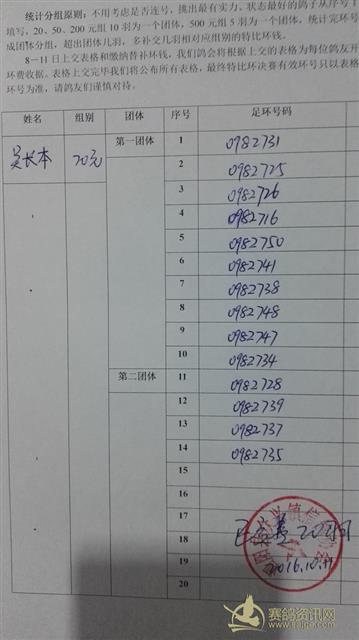 统计分组原则：不用考虑是否连号，挑出最有实力，状态最好的鸽子从序号1
填写，20、50、200元组10羽为一个团体，500元组5羽为一个团体，统计完环号
成团体分组，超出团体几羽，多补交几羽相对应组别的特比环钱。
8－11日上交表格和缴纳替补环钱，我们鸽会将根据上交的表格为每位鸽友开
环费收据。表格上交完毕我们将公布所有表格，最终特比环决赛有效环号只以表格
环号为准，请鸽友们谨慎对待。
姓名 组别 团体 序号 足环号码
吴长本 20元 第一团体 1 0982731
2 0982725
3 0982726
4 0982716
5 0982750
6 0982741
7 0982738
8 0982748
9 0982747
10 0982734
第二团体 11 0982728
12 0982739
13 0982737
14 0982735
15
16
17
18
19 2016.10.11
20
赛鸽资讯网
www.saige.com